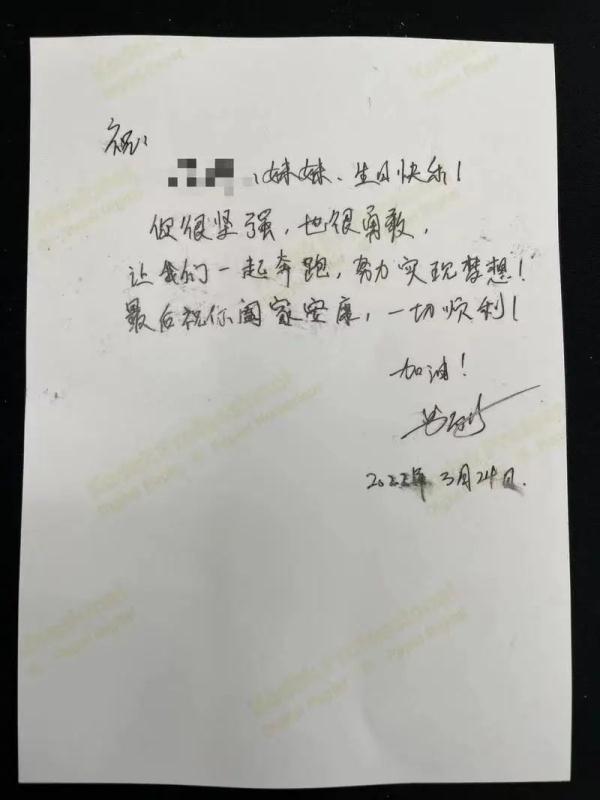 祝:
妹妹、生日快乐!
你很坚强,也很勇敢,
让我们一起奔跑,努力实现梦想!
最后祝你阖家安康,一切顺利!
加油!
2022年3月24日.